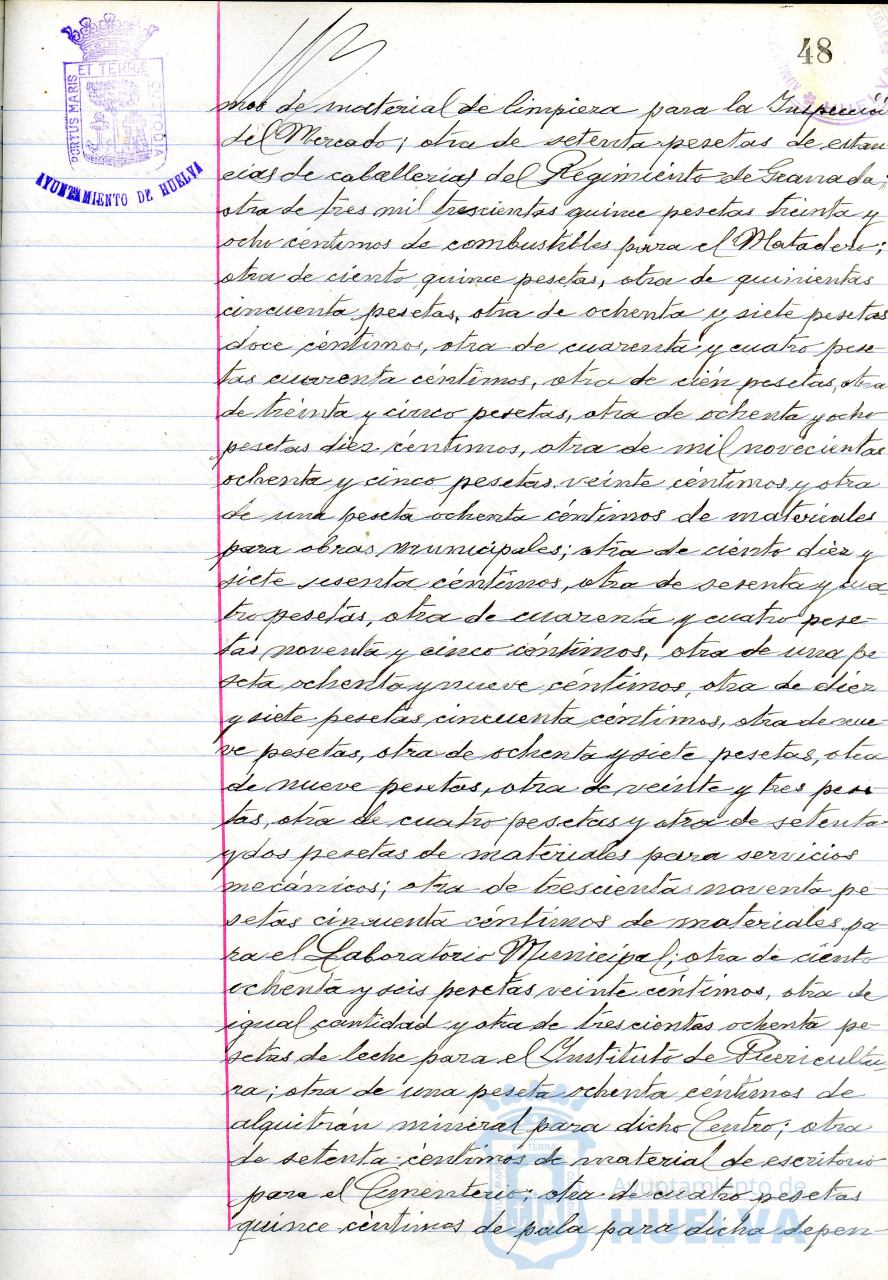 48
PORTUS MARIS
ET TERRAE
CUSTODIA
AYUNTAMIENTO DE HUELVA
mos de material de limpieza para la Inspección
del Mercado; otra de setenta pesetas de estan
cias de caballerias del Regimiento de Granada;
otra de tres mil trescientas quince pesetas treinta y
ocho céntimos de combustibles para el Matadero;
otra de ciento quince pesetas, otra de quinientas
cincuenta pesetas, otra de ochenta y siete pesetas
doce céntimos, otra de cuarenta y cuatro pese-
tas cuarenta céntimos, otra de cién pesetas, otra
de treinta y cinco pesetas, otra de ochenta y ocho
pesetas diez céntimos, otra de mil novecientas
ochenta y cinco pesetas veinte céntimos y otra
de una peseta ochenta céntimos de materiales
para obras municipales; otra de ciento diez y
siete sesenta céntimos, otra de sesenta y cua-
tro pesetas, otra de cuarenta y cuatro pese-
tas noventa y cinco céntimos, otra de una pe
seta ochenta y nueve céntimos, otra de diez
y siete pesetas cincuenta céntimos, otra de nue-
ve pesetas, otra de ochenta y siete pesetas, otra
de nueve pesetas, otra de veinte y tres pese-
tas, otra de cuatro pesetas y otra de setenta
y dos pesetas de materiales para servicios
mecánicos; otra de trescientas noventa pe-
setas cincuenta céntimos de materiales pa-
ra el Laboratorio Municipal; otra de ciento
ochenta y seis pesetas veinte céntimos, otra de
igual cantidad y otra de trescientas ochenta pe-
setas de leche para el Instituto de Puericultu-
ra; otra de una peseta ochenta céntimos de
alquitrán mineral para dicho Centro; otra
de setenta céntimos de material de escritorio
para el Cementerio; otra de cuatro pesetas
quince céntimos de pala para dicha depen-
Ayuntamiento de
HUELVA